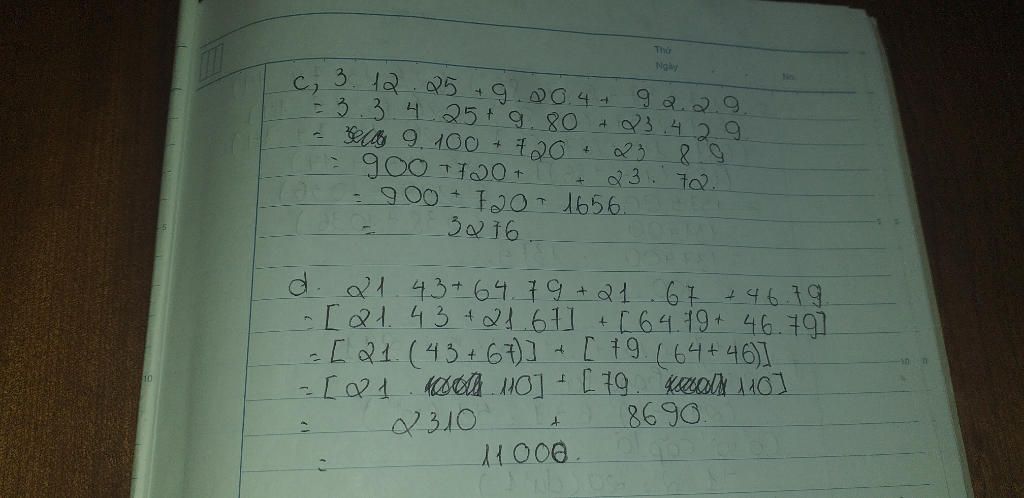 Thứ
Ngày
No.
c, 3.12.25 + 9.20.4 + 92.2.9
= 3.3.4.25 + 9.80 + 23.4 2 9
= 9.100 + 720 + 23 8 9
= 900 + 720 + + 23.72.
= 900 + 720 + 1656.
= 3276
d. 21.43 + 64.79 + 21.67 + 46.79
= [21.43 + 21.67] + [64.79 + 46.79]
= [21.(43 + 67)] + [79.(64 + 46)]
= [21 . 110] + [79. 110]
= 2310 + 8690.
= 11000.